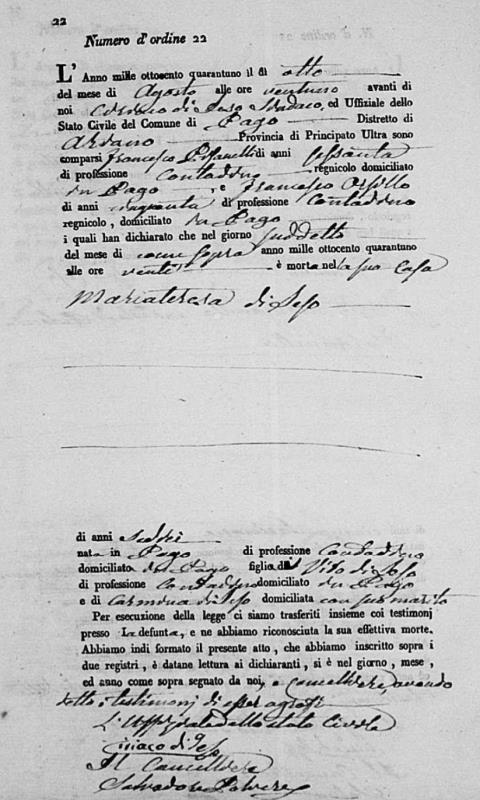 22
Numero d'ordine 22
L' Anno mille ottocento quarantuno il dì otto
del mese di Agosto alle ore ventuno avanti di
noi di Sindaco, ed Uffiziale dello
Stato Civile del Comune di Pago Distretto di
Ariano Provincia di Principato Ultra sono
comparsi Francesco di anni sessanta
di professione Contadino regnicolo domiciliato
in Pago, e Francesco
di anni cinquanta di professione Contadino
regnicolo, domiciliato in Pago
i quali han dichiarato che nel giorno suddetto
del mese di come sopra anno mille ottocento quarantuno
alle ore venti è morta nella sua Casa
Mariateresa di
di anni sedici
nata in Pago di professione Contadina
domiciliata in Pago figlia di Vito di
di professione Contadino domiciliato in Pago
e di Carmina di domiciliata con suo marito
Per esecuzione della legge ci siamo trasferiti insieme coi testimonj
presso la defunta, e ne abbiamo riconosciuta la sua effettiva morte.
Abbiamo indi formato il presente atto, che abbiamo inscritto sopra i
due registri, è datane lettura ai dichiaranti, si è nel giorno, mese,
ed anno come sopra segnato da noi, e cancelliere avendo
detto i testimonj di esser
L'Uffiziale dello stato Civile
di
Il Cancelliere
Salvadore